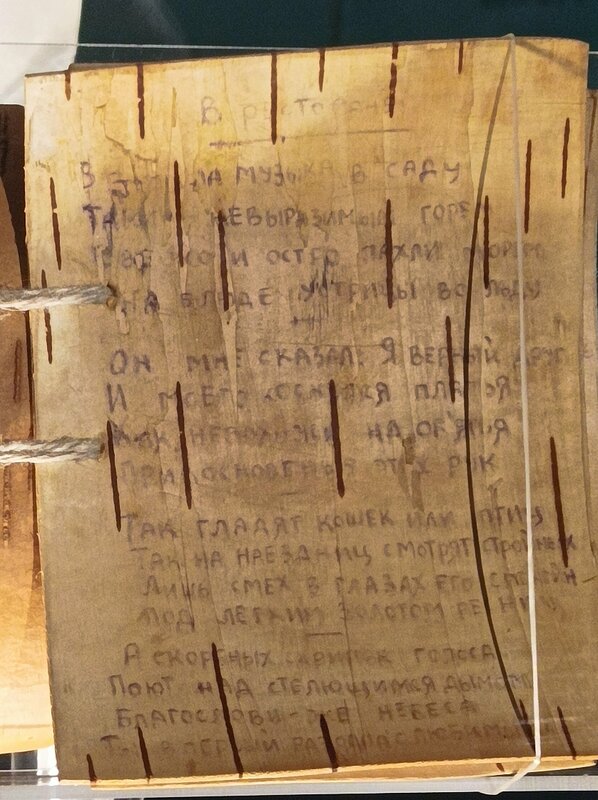 В ресторане
МУЗЫКА В САДУ
ТАКИМ НЕВЫРАЗИМЫМ ГОРЕМ
СВЕЖО И ОСТРО ПАХЛИ МОРЕМ
НА БЛЮДЕ УСТРИЦЫ ВО ЛЬДУ
ОН МНЕ СКАЗАЛ: Я ВЕРНЫЙ ДРУГ
И МОЕГО КОСНУЛСЯ ПЛАТЬЯ
КАК НЕПОХОЖИ НА ОБ'ЯТЬЯ
ПРИКОСНОВЕНЬЯ ЭТИХ РУК
ТАК ГЛАДЯТ КОШЕК ИЛИ ПТИЦ
ТАК НА НАЕЗДНИЦ СМОТРЯТ СТРОЙНЫХ
ЛИШЬ СМЕХ В ГЛАЗАХ ЕГО
ПОД ЛЕГКИМ ЗОЛОТОМ РЕСНИЦ
А СКОРБНЫХ СКРИПОК ГОЛОСА
ПОЮТ НАД СТЕЛЮЩИМСЯ ДЫМОМ
БЛАГОСЛОВИ-ЖЕ НЕБЕСА
ТЫ В ПЕРВЫЙ РАЗ ОДНА С ЛЮБИМЫМ